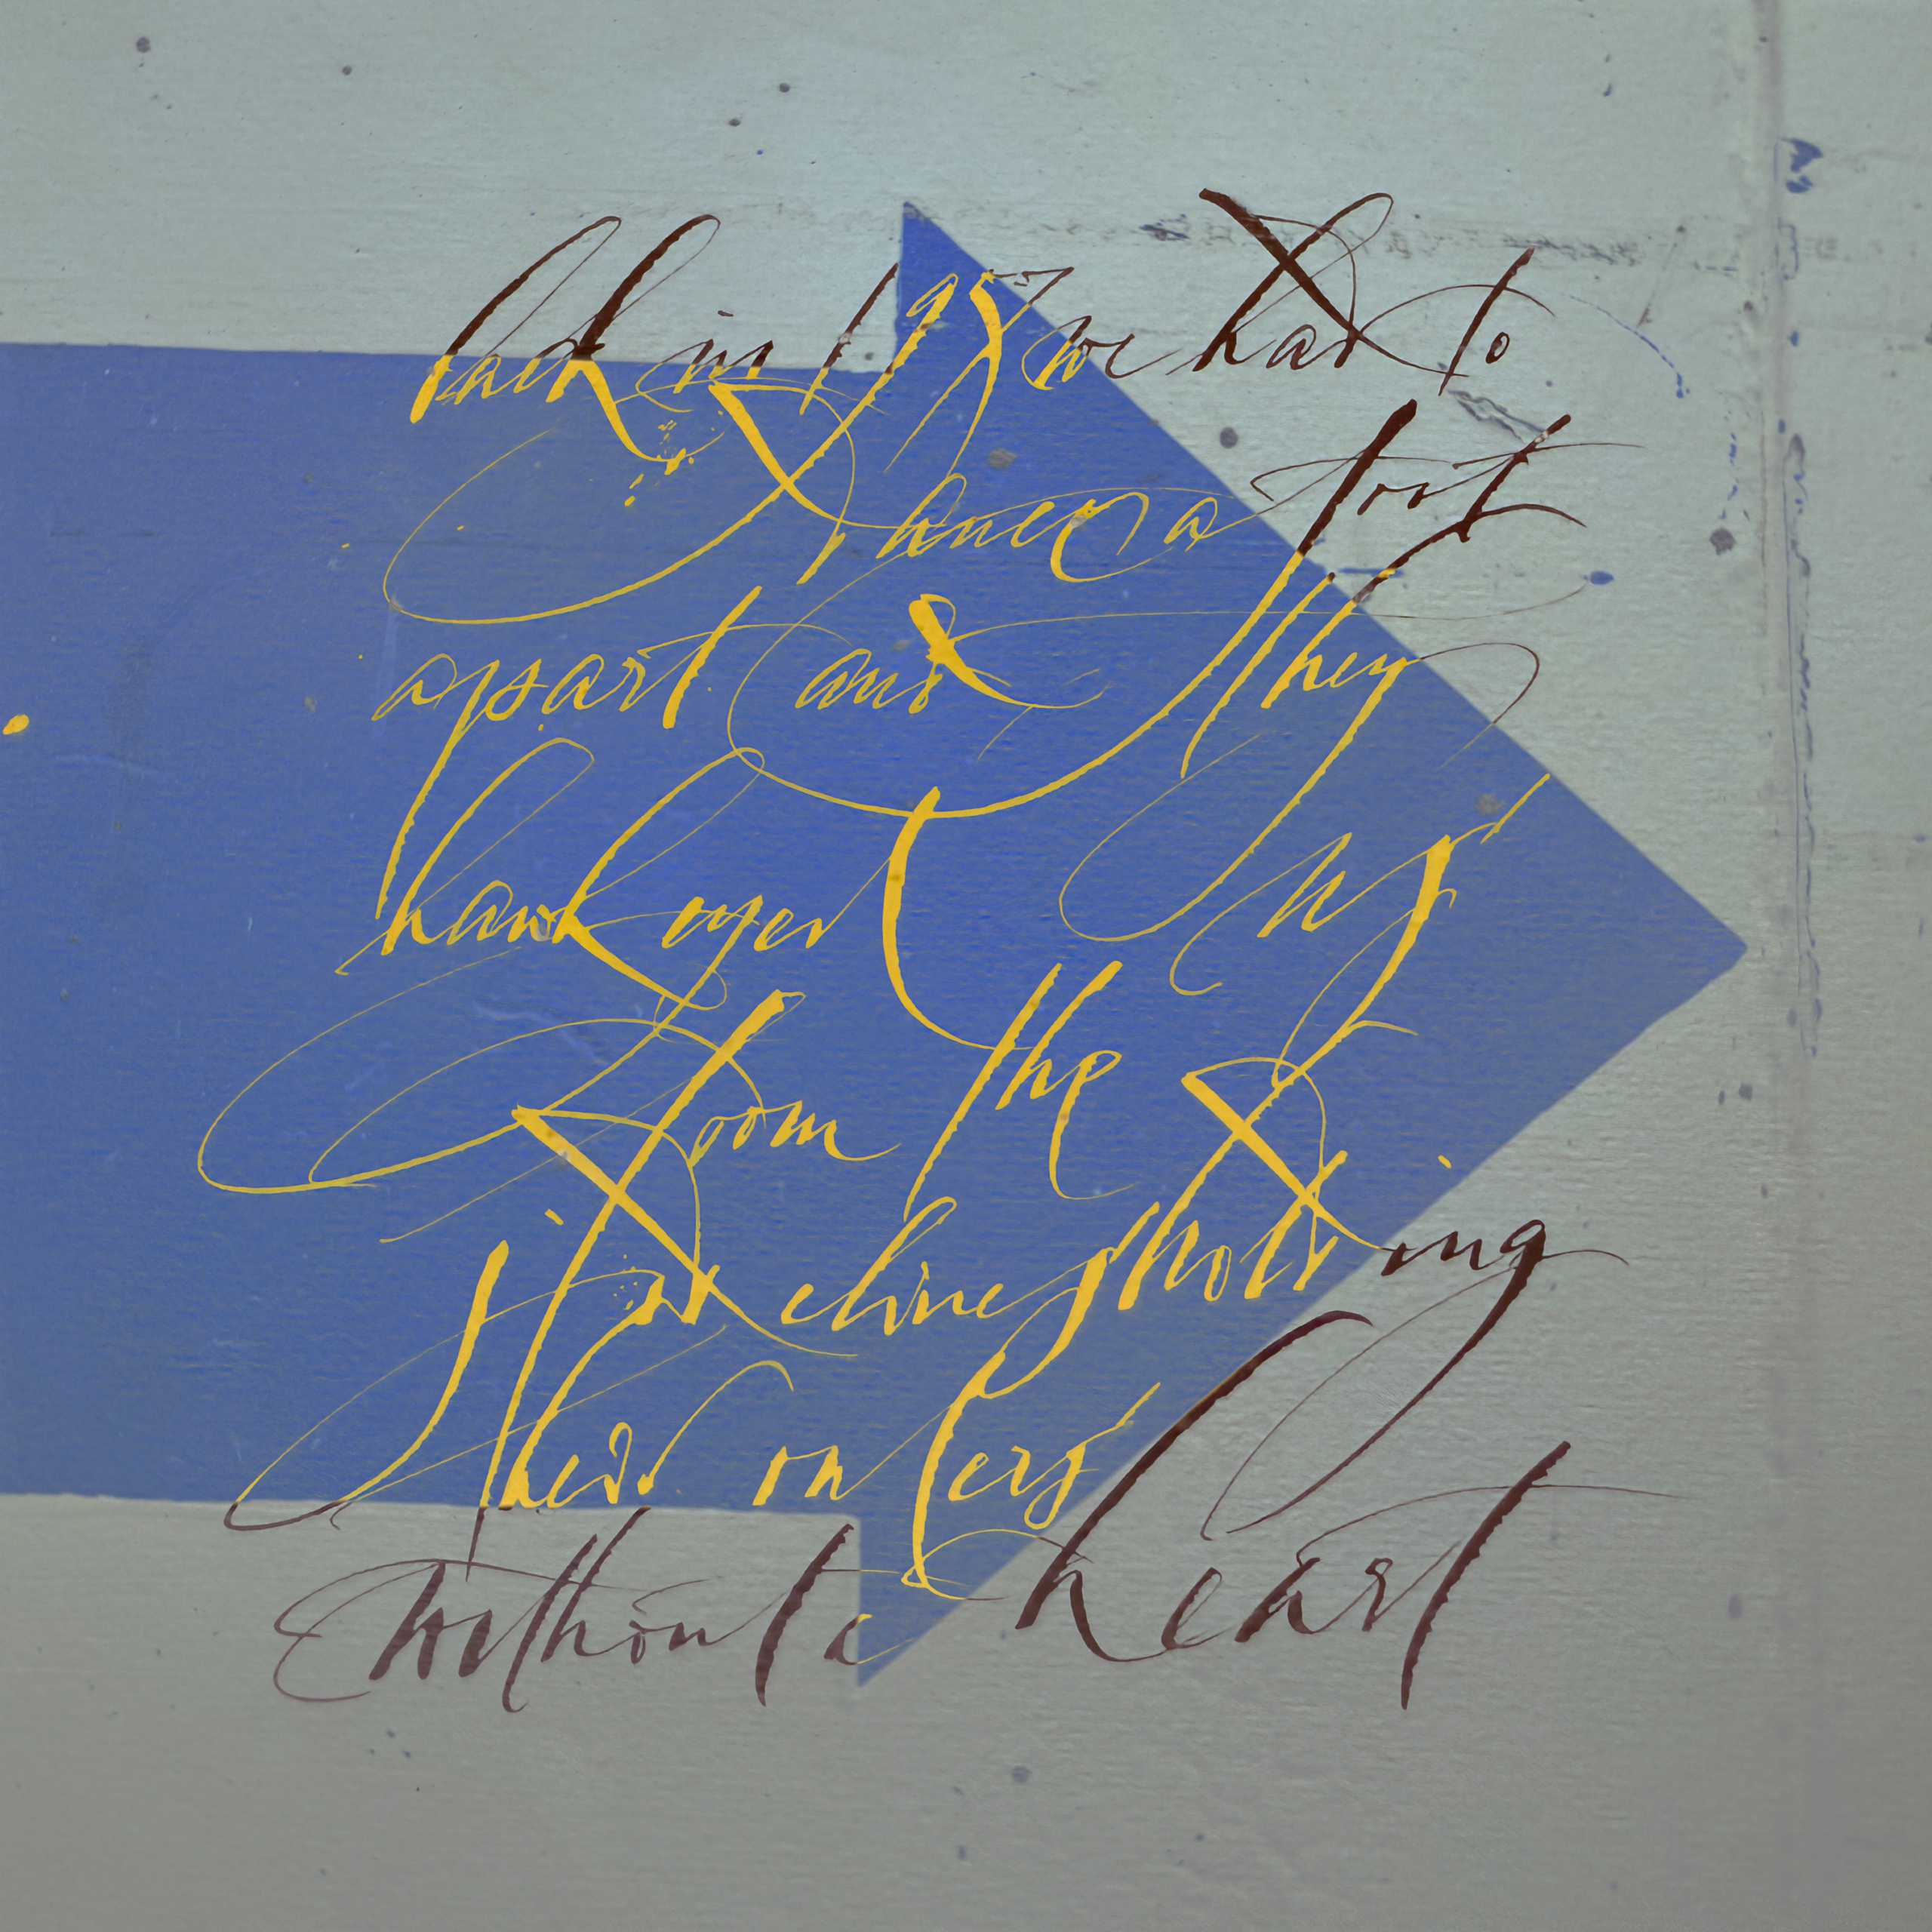 back in 1957 we had to
dance a foot
apart and they
hawk eyed us
from the
sidelines holding
their rulers
without a heart